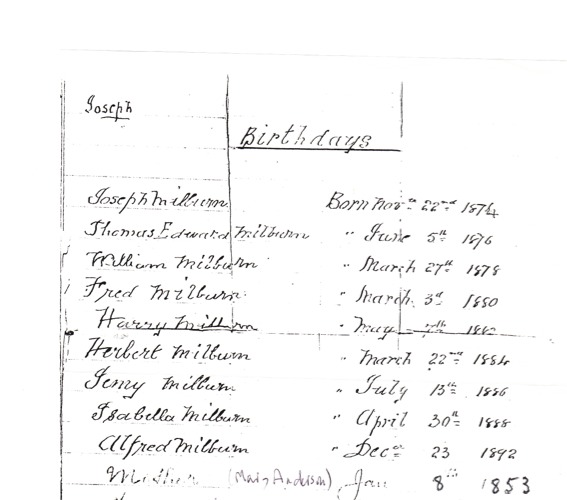 Joseph
Birthdays
Joseph Milburn Born Nov 22nd 1874
Thomas Edward Milburn " June 5th 1876
William Milburn " March 27th 1878
Fred Milburn " March 3rd 1880
Harry Milburn " May 7th 1882
Herbert Milburn " March 22nd 1884
Jenny Milburn " July 13th 1886
Isabella Milburn " April 30th 1888
Alfred Milburn " Dec 23 1892
Mother (Mary Anderson) Jan 8th 1853